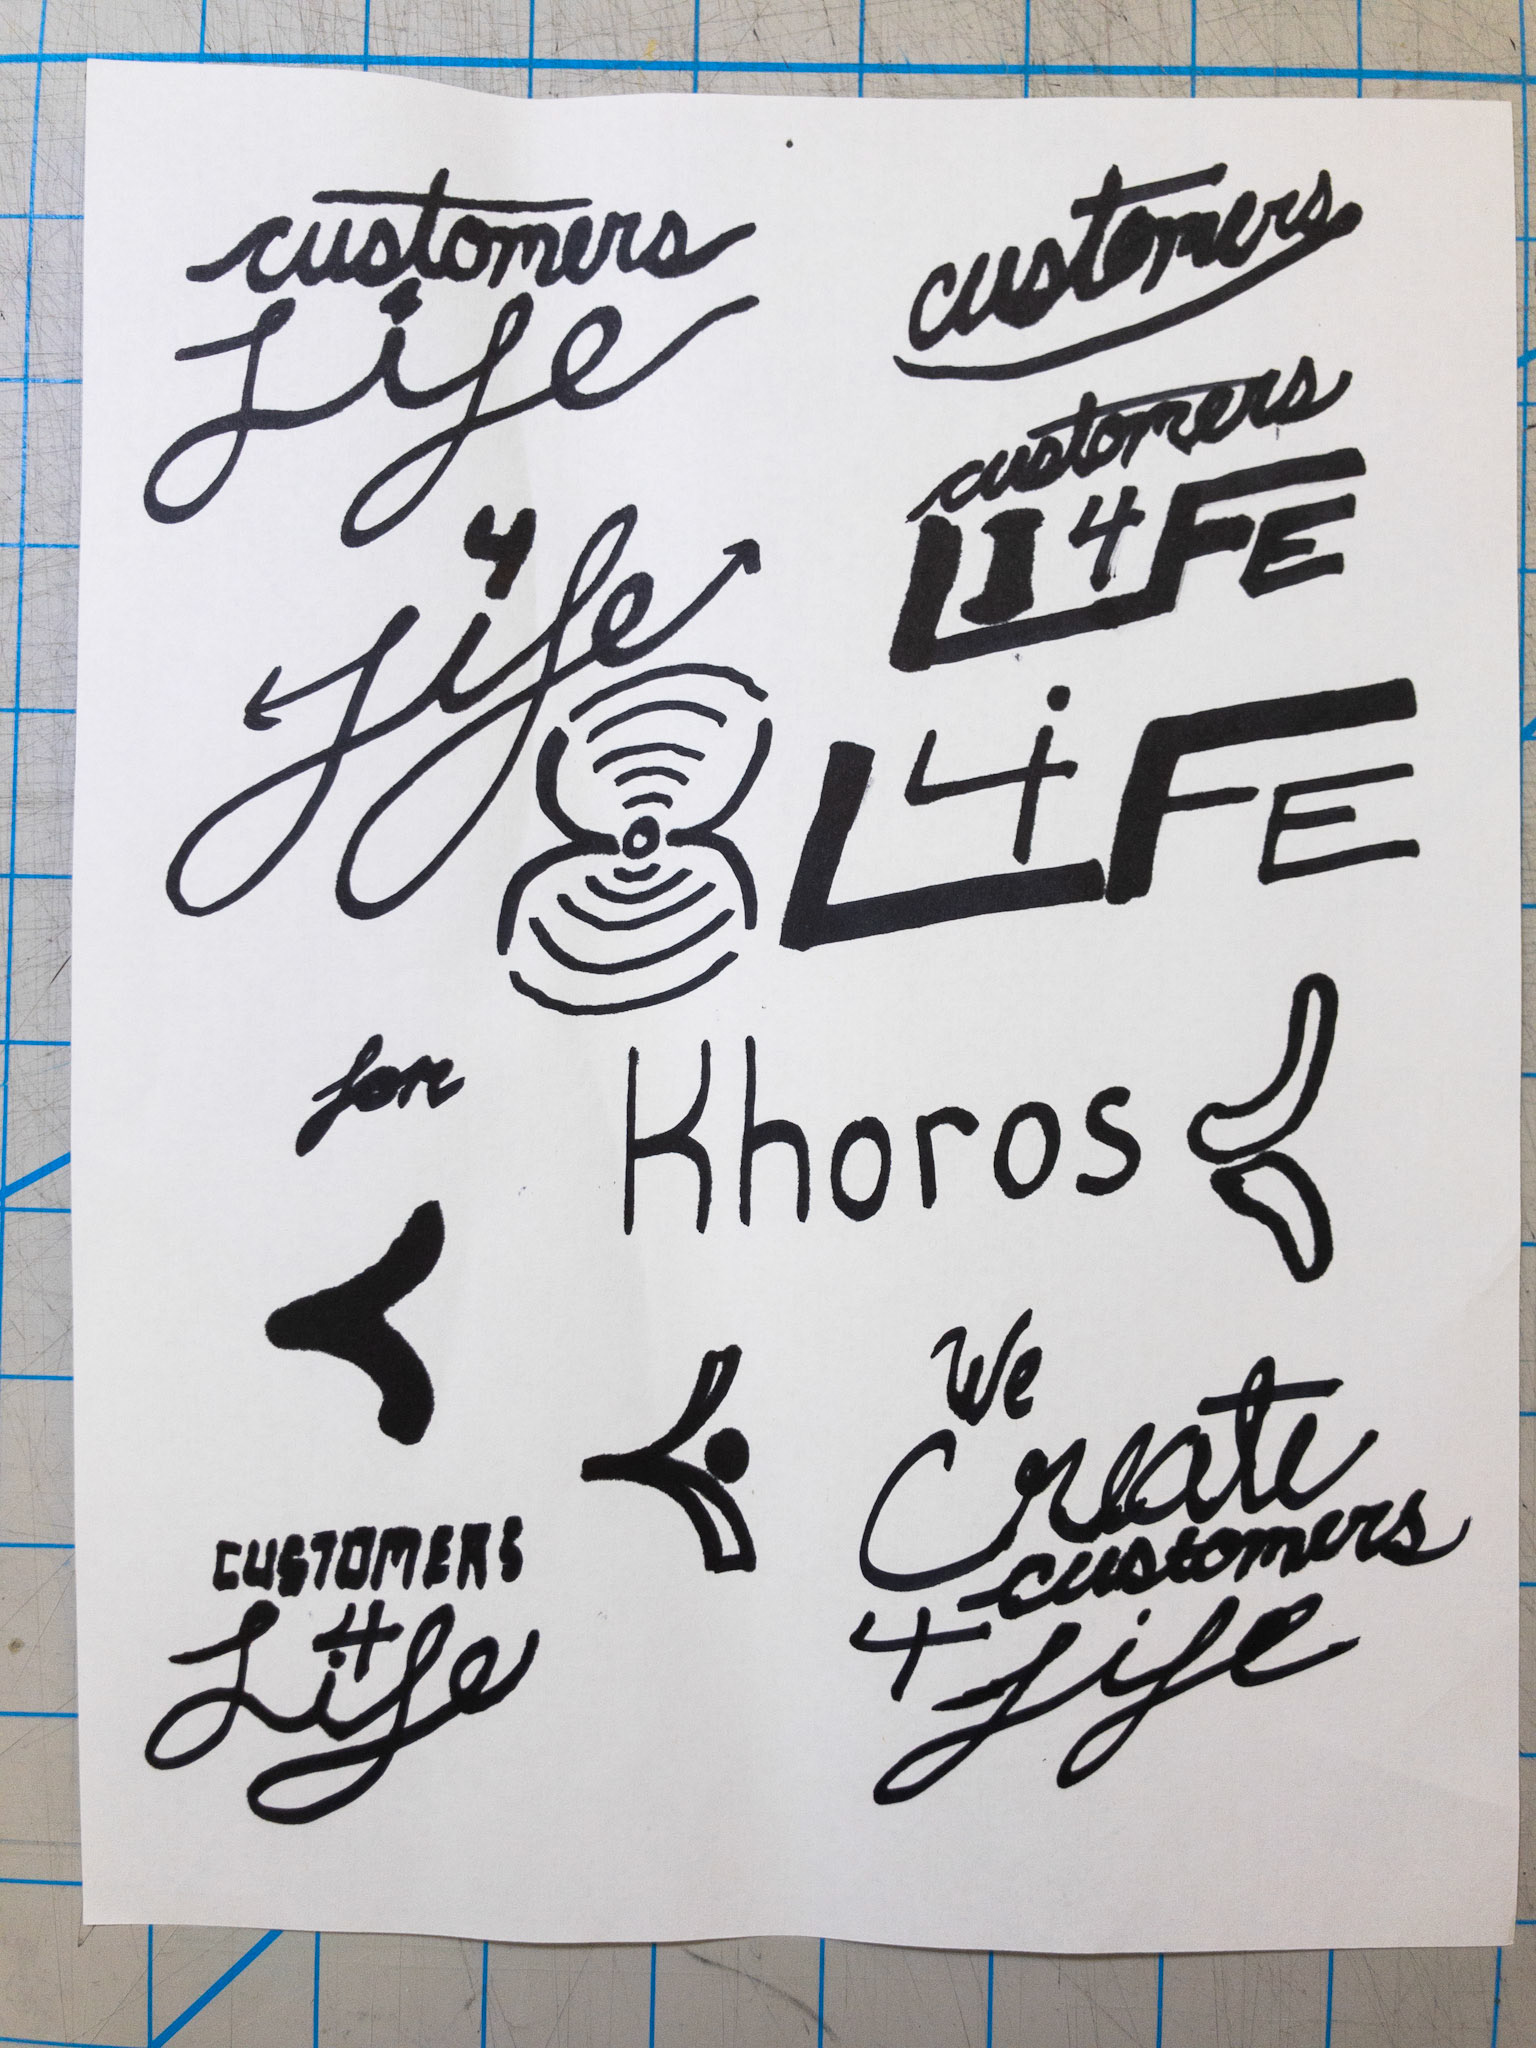 customers
4
Life
customers
customers
LI4FE
4
Life
L4iFE
for
Khoros
We
Create
customers
4 Life
CUSTOMERS
4
Life